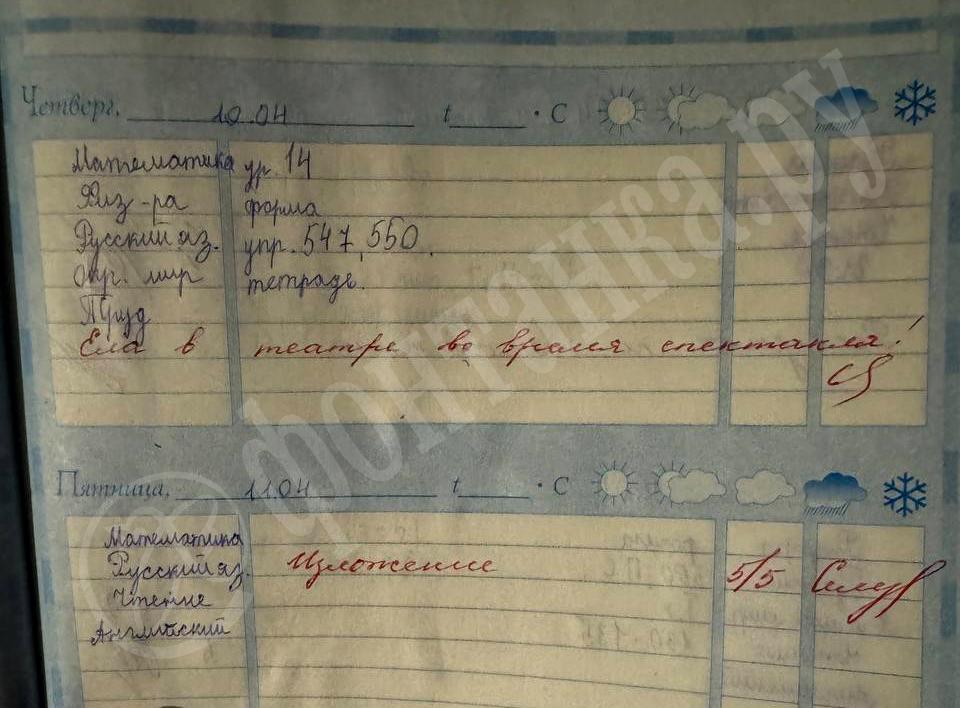 Четверг, 10.04 t · С
Математика ур. 14
Физ-ра форма
Русский яз. упр. 547, 550.
Окр. мир тетрадь.
Труд
Ела в театре во время спектакля!
Пятница, 11.04 t · С
Математика
Русский яз. Изложение 5/5
Чтение
Английский
@фонтанка.ру